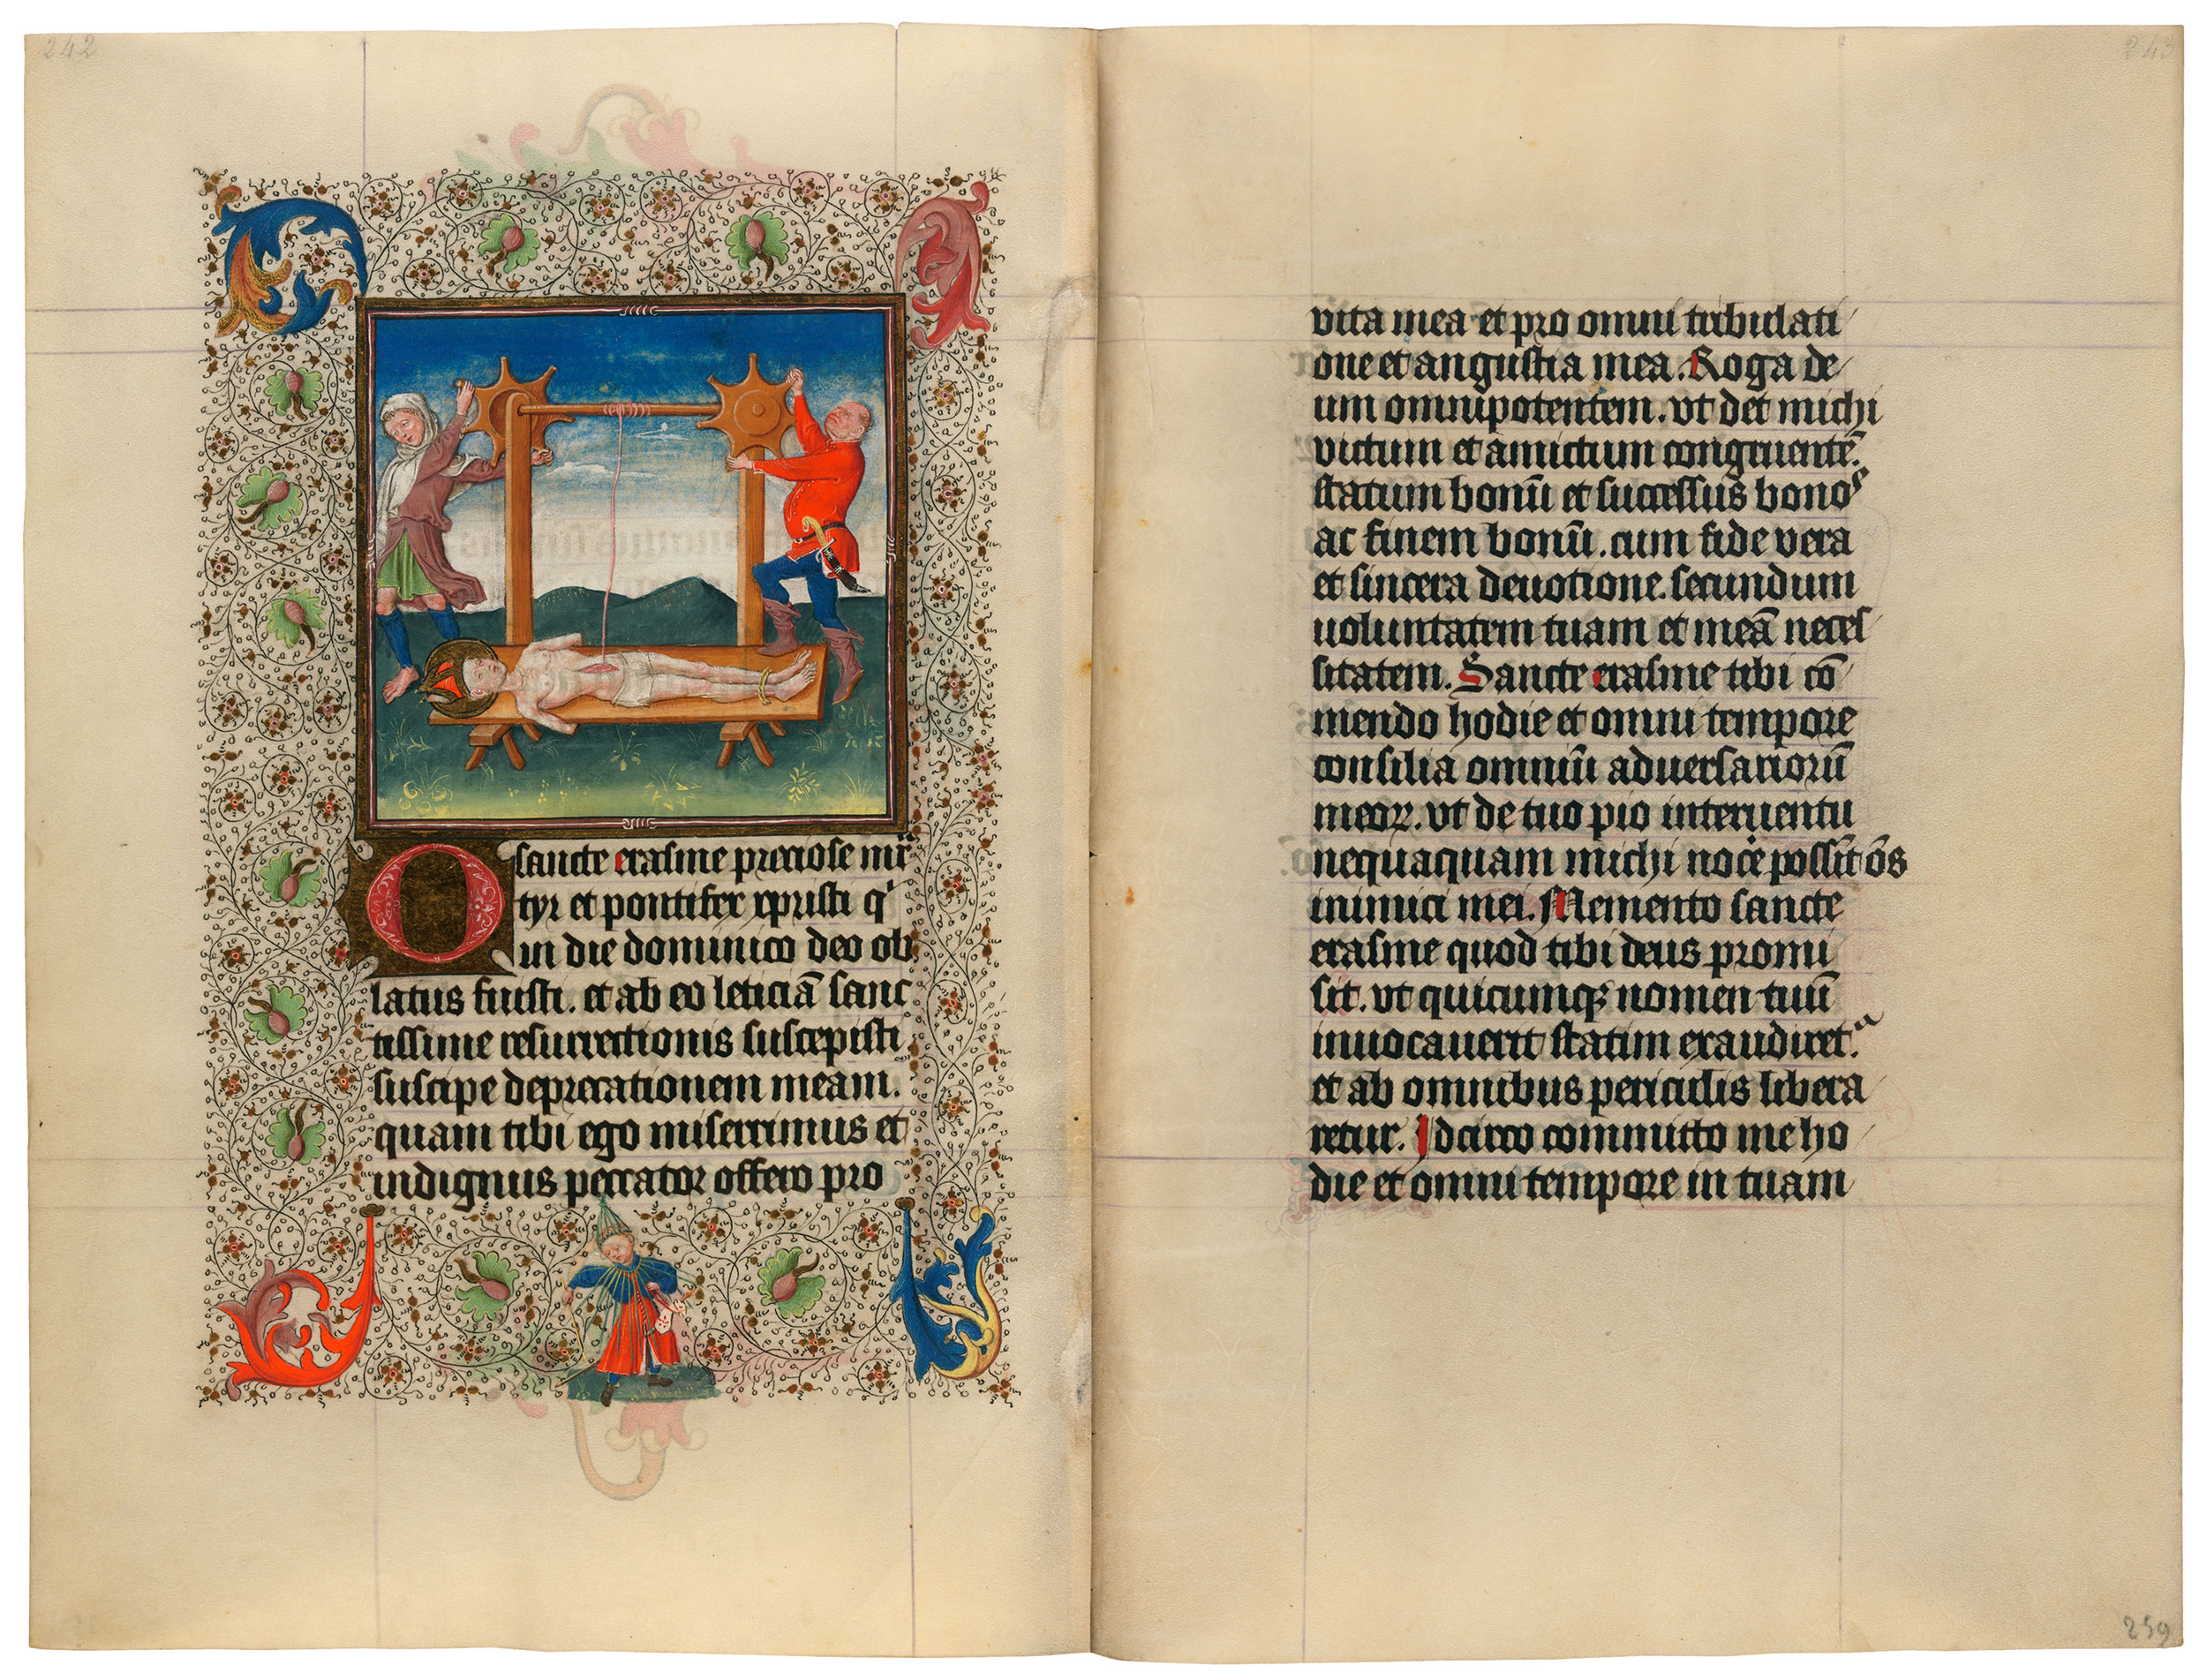 242
O sancte erasme preciose mr̄
tyr et pontifex xpristi qͥ
in die dominico deo ob
latus fuisti. et ab eo leticiā sanc
tissime resurrectionis suscepisti
suscipe deprecationem meam.
quam tibi ego miserrimus et
indignus peccator offero pro
243
vita mea et pro omni tribulati
one et angustia mea. Roga de
um omnipotentem. vt det michi
victum et amictum congruentē.
statum bonū et successus bonoˢ
ac finem bonū. cum fide vera
et sincera deuotione. secundum
uoluntatem tuam et meā neces
sitatem. Sancte erasme tibi cō
mendo hodie et omni tempore
consilia omniū aduersariorū
meoꝝ. vt de tuo pio interuentu
nequaquam michi nocē possūt ōs
inimici mei. Memento sancte
erasme quod tibi deus promi
sit. vt quicumqꝫ nomen tuū
inuocauerit statim exaudiret.ᵘ
et ab omnibus periculis libera
retur. Idcirco committo me ho
die et omni tempore in tuam
259